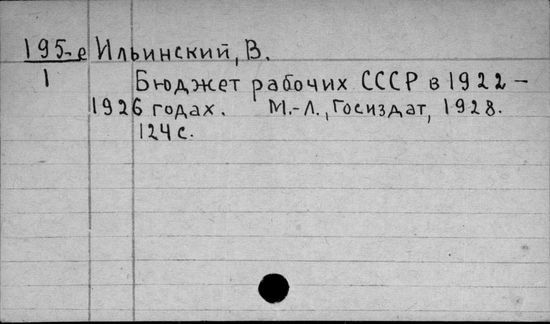 195-е Ильинский, В.
1 Бюджет рабочих СССР в 1922-
1926 годах. М.-Л., Госиздат, 1928.
124 с.